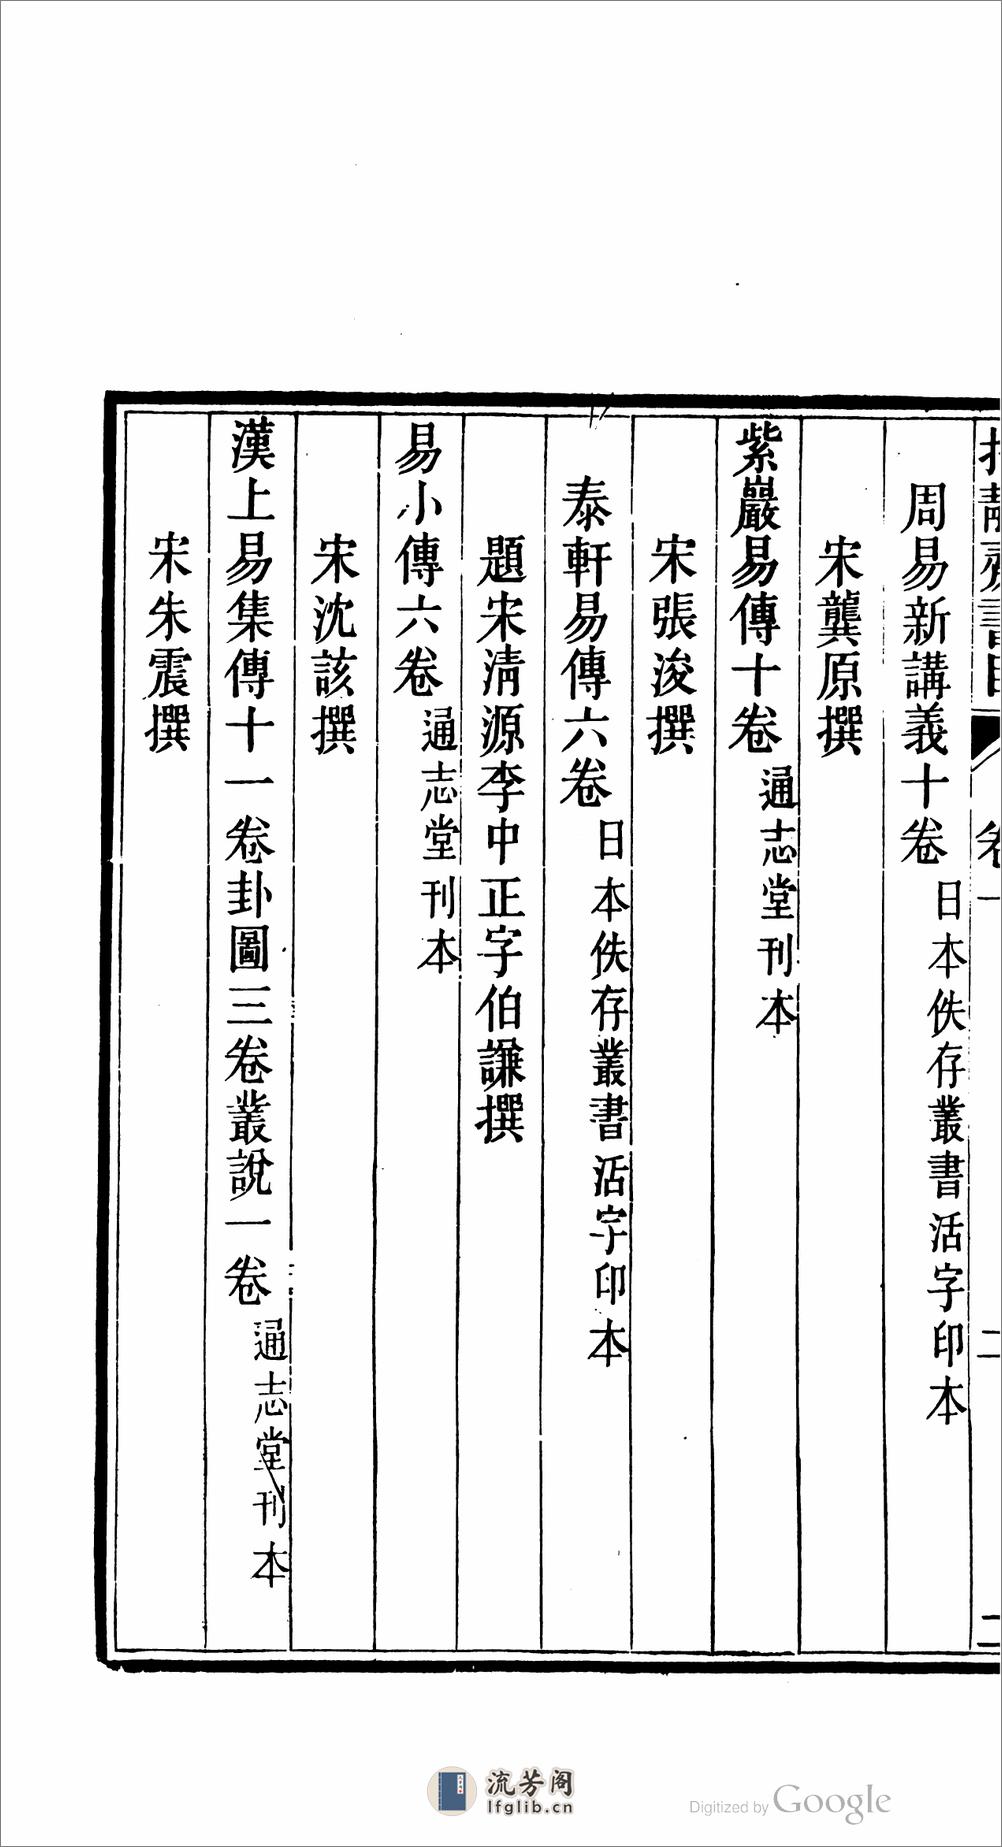 周易新講義十卷 日本佚存叢書活字印本
宋龔原撰
紫巖易傳十卷 通志堂刊本
宋張浚撰
泰軒易傳六卷 日本佚存叢書活字印本
題宋淸源李中正字伯謙撰
易小傳六卷 通志堂刊本
宋沈該撰
漢上易集傳十一卷卦圖三卷叢說一卷 通志堂刊本
宋朱震撰
流芳阁
lfglib.cn
Digitized by Google